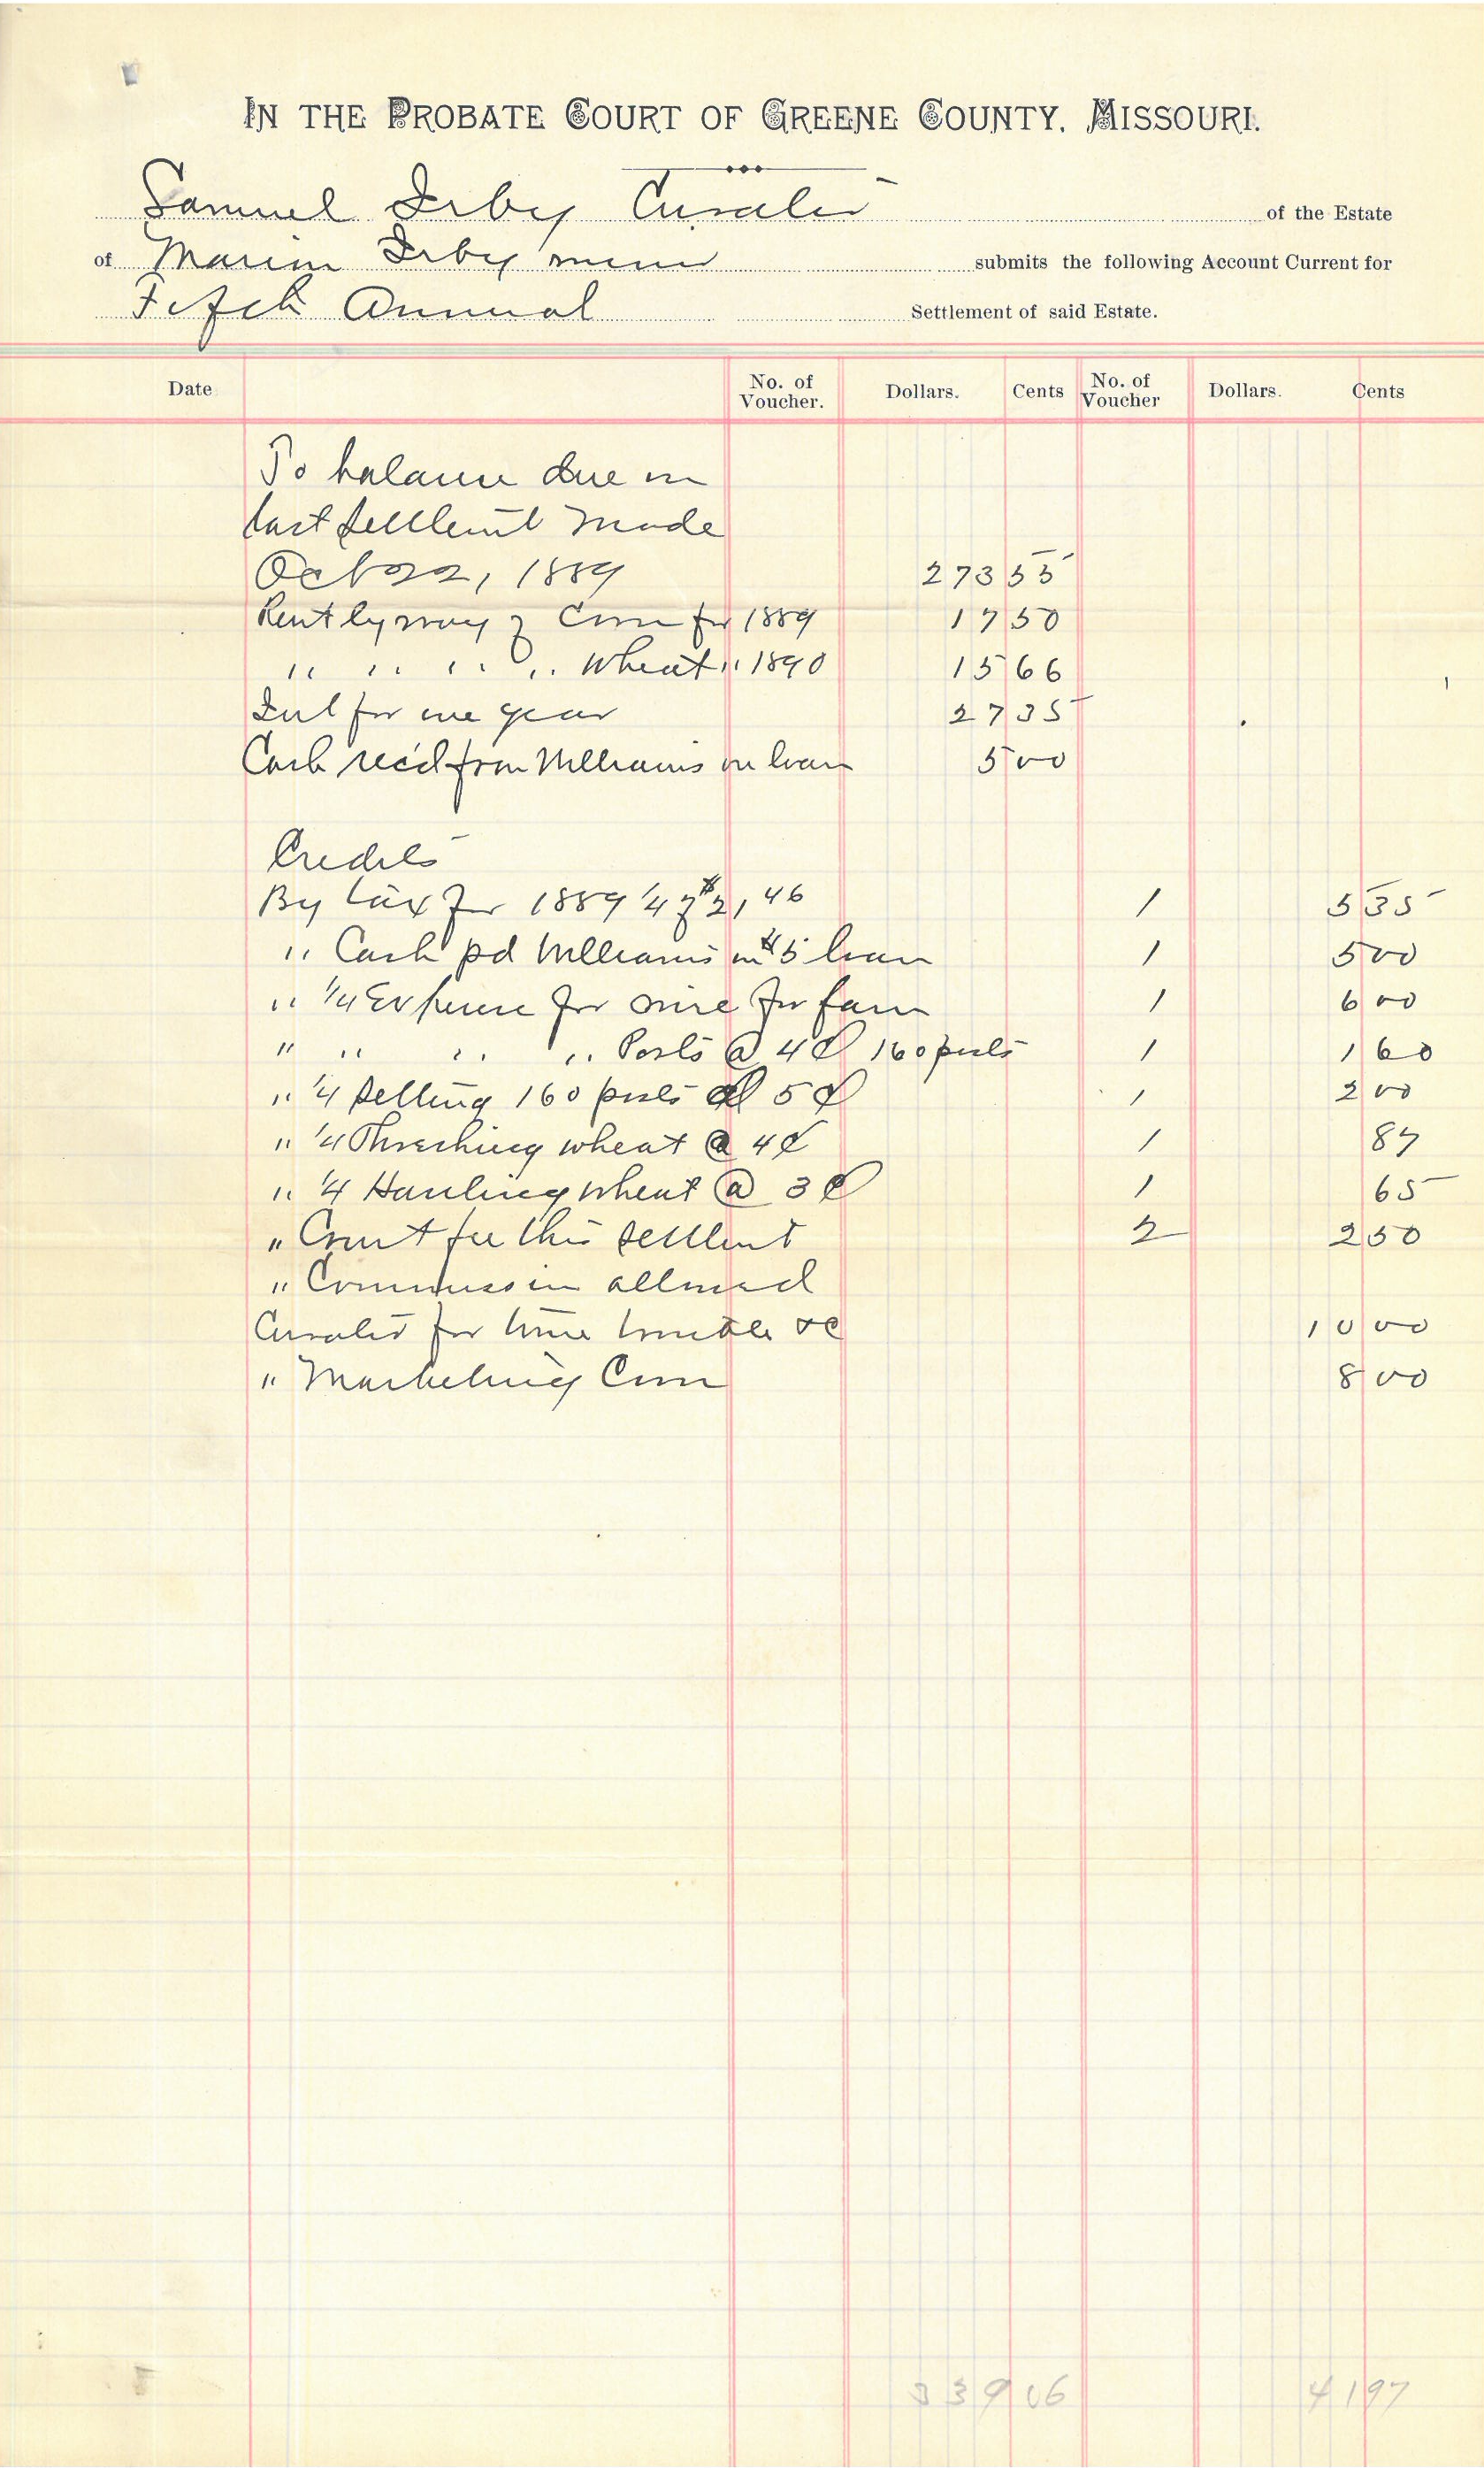 IN THE PROBATE COURT OF GREENE COUNTY, MISSOURI.
Samuel Irby Curator of the Estate
of Marion Irby minor submits the following Account Current for
Fifth Annual Settlement of said Estate.
Date No. of Voucher. Dollars. Cents No. of Voucher Dollars. Cents
To balance due on
last settlemt made
Oct 22, 1889 273 55
Rent by way of Corn for 1889 17 50
" " " " Wheat " 1890 15 66
Int for one year 27 35
Cash rec'd from Williams on loan 5 00
Credits
By tax for 1889 1/4 of $21,46 1 5 35
" Cash pd Williams on $5 loan 1 5 00
" 1/4 Expense for wire for farm 1 6 00
" " " " Posts @ 4¢ 160 posts 1 1 60
" 1/4 Setting 160 posts @ 5¢ 1 2 00
" 1/4 Threshing wheat @ 4¢ 1 87
" 1/4 Hauling wheat @ 3¢ 1 65
" Court fee this settlmt 2 2 50
" Commission allowed
Curator for time trouble &c 10 00
" Marketing Corn 8 00
339 06 41 97